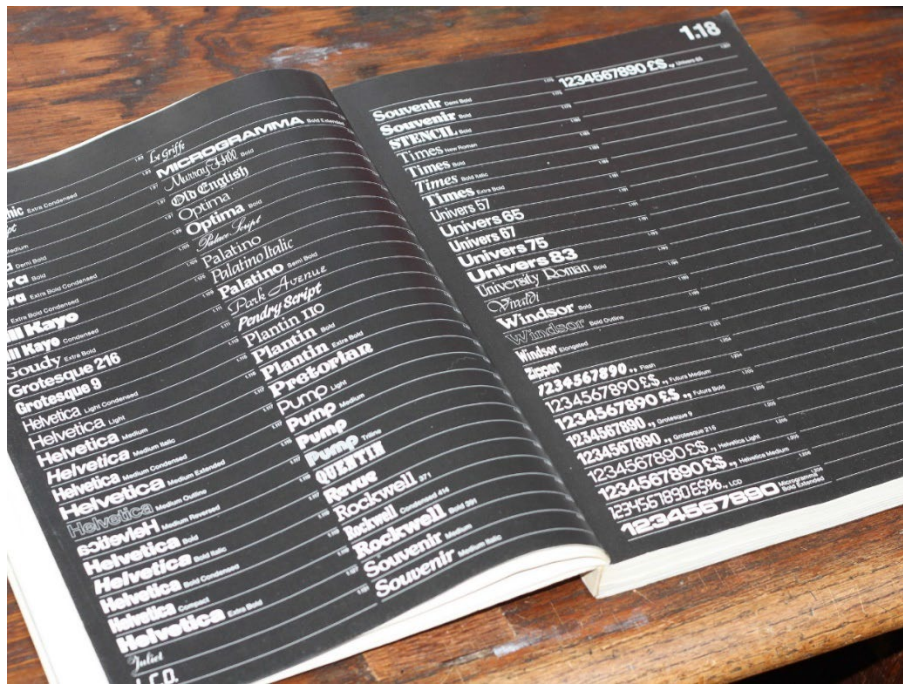 Extra Condensed
Medium
Demi Bold
Bold
Extra Bold Condensed
Extra Bold Condensed
Kayo
Kayo Condensed
Goudy Extra Bold
Grotesque 216
Grotesque 9
Helvetica Light Condensed
Helvetica Light
Helvetica Medium
Helvetica Medium Italic
Helvetica Medium Condensed
Helvetica Medium Extended
Helvetica Medium Outline
Helvetica Medium Reversed
Helvetica Bold
Helvetica Bold Italic
Helvetica Bold Condensed
Helvetica Compact
Helvetica Extra Bold
Juliet
L.C.D.
Le Griffe
MICROGRAMMA Bold Extended
Murray Hill Bold
Old English
Optima
Optima Bold
Palace Script
Palatino
Palatino Italic
Palatino Semi Bold
Park Avenue
Pendry Script
Plantin 110
Plantin Bold
Plantin Extra Bold
Pretorian
Pump Light
Pump Medium
Pump
Pump Triline
QUENTIN
Revue
Rockwell 371
Rockwell Condensed 414
Rockwell Bold 391
Souvenir Medium
Souvenir Medium Italic
1.18
Souvenir Demi Bold
Souvenir Bold
STENCIL Bold
Times New Roman
Times Bold
Times Bold Italic
Times Extra Bold
Univers 57
Univers 65
Univers 67
Univers 75
Univers 83
University Roman Bold
Vivaldi
Windsor Bold
Windsor Bold Outline
Windsor Elongated
Zipper
1234567890 Flash
1234567890 £$ Futura Medium
1234567890 £$ Futura Bold
1234567890 Grotesque 9
1234567890 Grotesque 216
1234567890 £$ Helvetica Light
1234567890 £$ Helvetica Medium
1234567890 LCD
1234567890 Microgramma Bold Extended
1234567890 £$ Univers 65